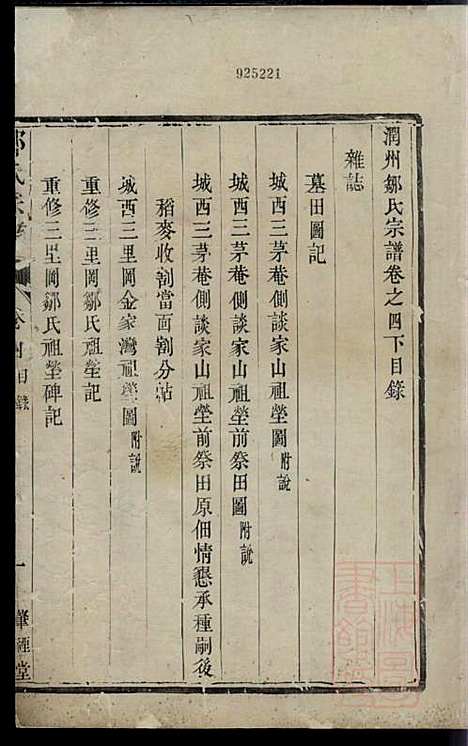 925221
潤州鄒氏宗譜卷之四下目錄
雜誌
墓田圖記
城西三茅菴側談家山祖塋圖附說
城西三茅菴側談家山祖塋前祭田圖附說
城西三茅菴側談家山祖塋前祭田原佃情懇承種嗣後
稻麥收割當面割分啙
城西三里岡金家灣祖塋圖附說
重修三里岡鄒氏祖塋記
重修三里岡鄒氏祖塋碑記
鄒氏宗譜
卷四目錄
一
肇禋堂